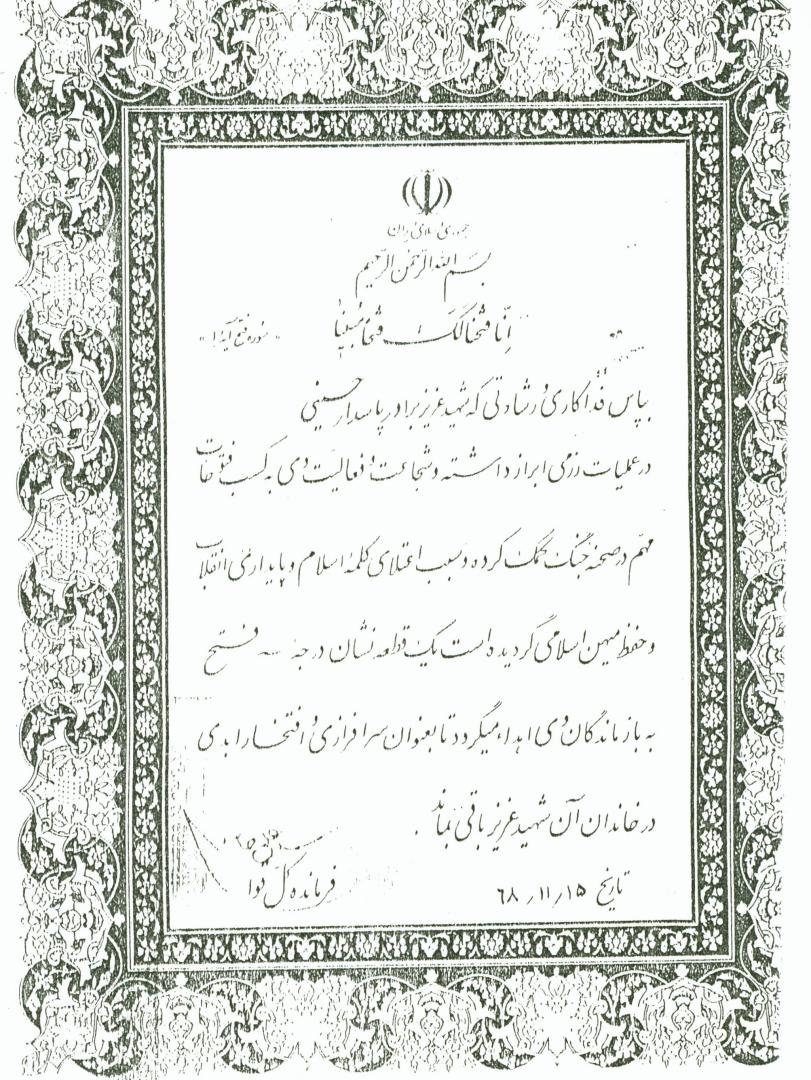 جمهوری اسلامی ایران
بسم الله الرحمن الرحیم
اِنّا فَتَحنا لَکَ فَتحاً مُبیناً « سوره فتح آیه ۱ »
بپاس فداکاری و رشادتی که شهید عزیز برادر پاسدار حسینی
در عملیات رزمی ابراز داشته و شجاعت و فعالیت وی به کسب فتوحات
مهم در صحنه جنگ کمک کرده و سبب اعتلای کلمه اسلام و پایداری انقلاب
و حفظ میهن اسلامی گردیده است یک قطعه نشان درجه سه فتح
به بازماندگان وی اهداء میگردد تا بعنوان سرافرازی و افتخار ابدی
در خاندان آن شهید عزیز باقی بماند .
تاریخ ۶۸/۱۱/۱۵
فرمانده کل قوا